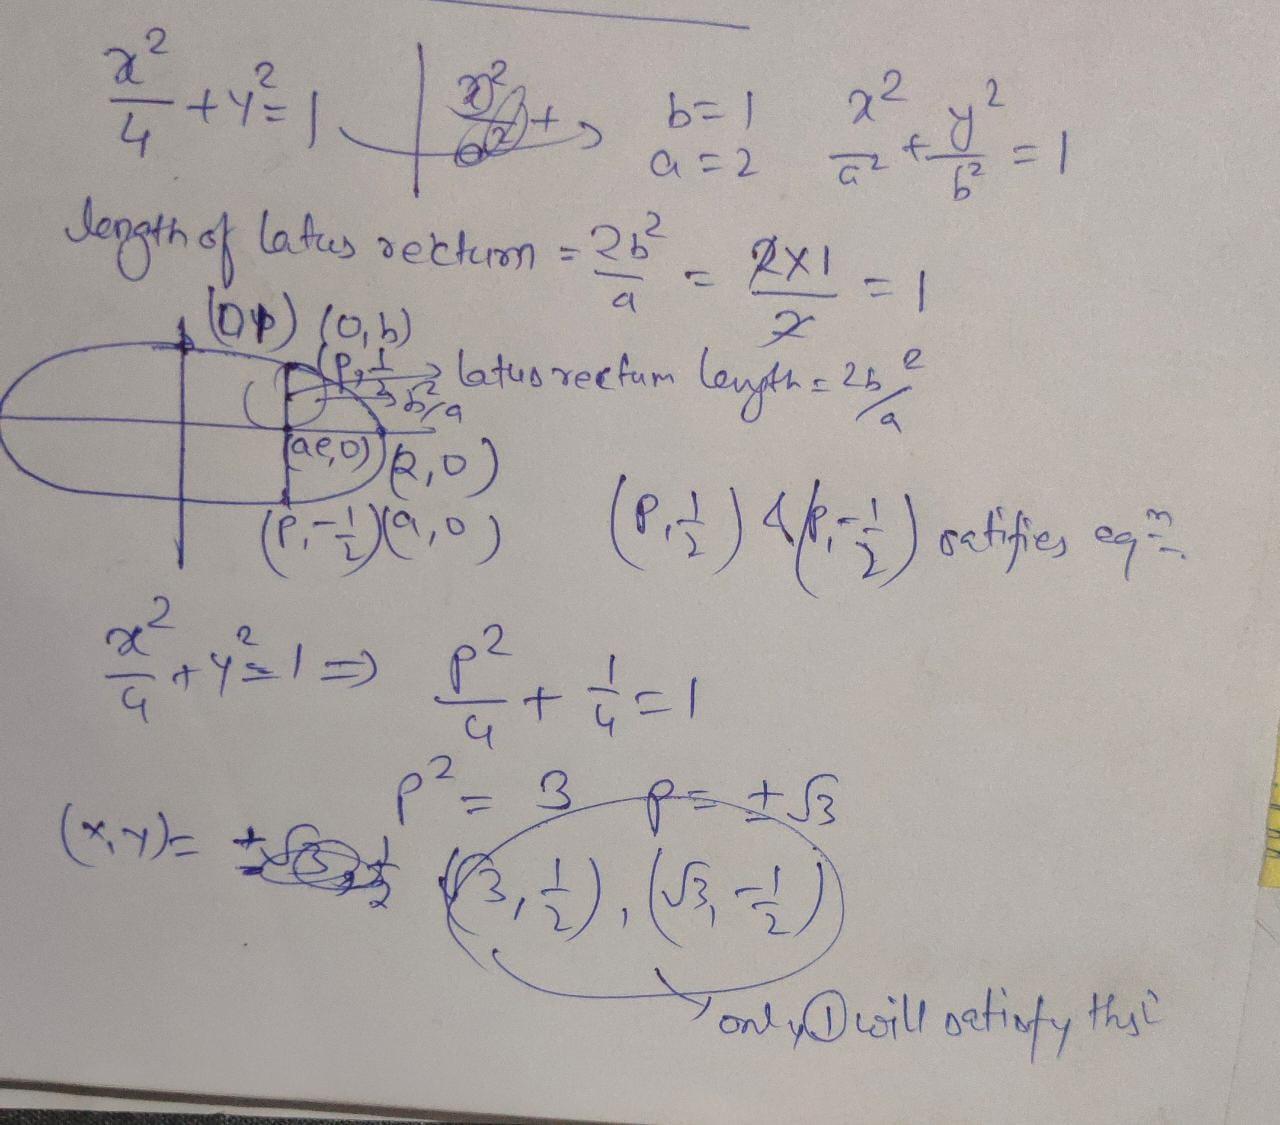 x²/4 + y² = 1 b = 1 x²/a² + y²/b² = 1
a = 2
length of latus rectum = 2b²/a = 2×1/2 = 1
(0, b)
(P, 1/2) → latus rectum length = 2b²/a
→ b²/a
(ae, 0) (2, 0)
(P, -1/2) (a, 0) (P, 1/2) & (P, -1/2) satifies eqⁿ.
x²/4 + y² = 1 ⇒ P²/4 + 1/4 = 1
P² = 3 P = ±√3
(x, y) = (√3, 1/2), (√3, -1/2)
only ① will satisfy